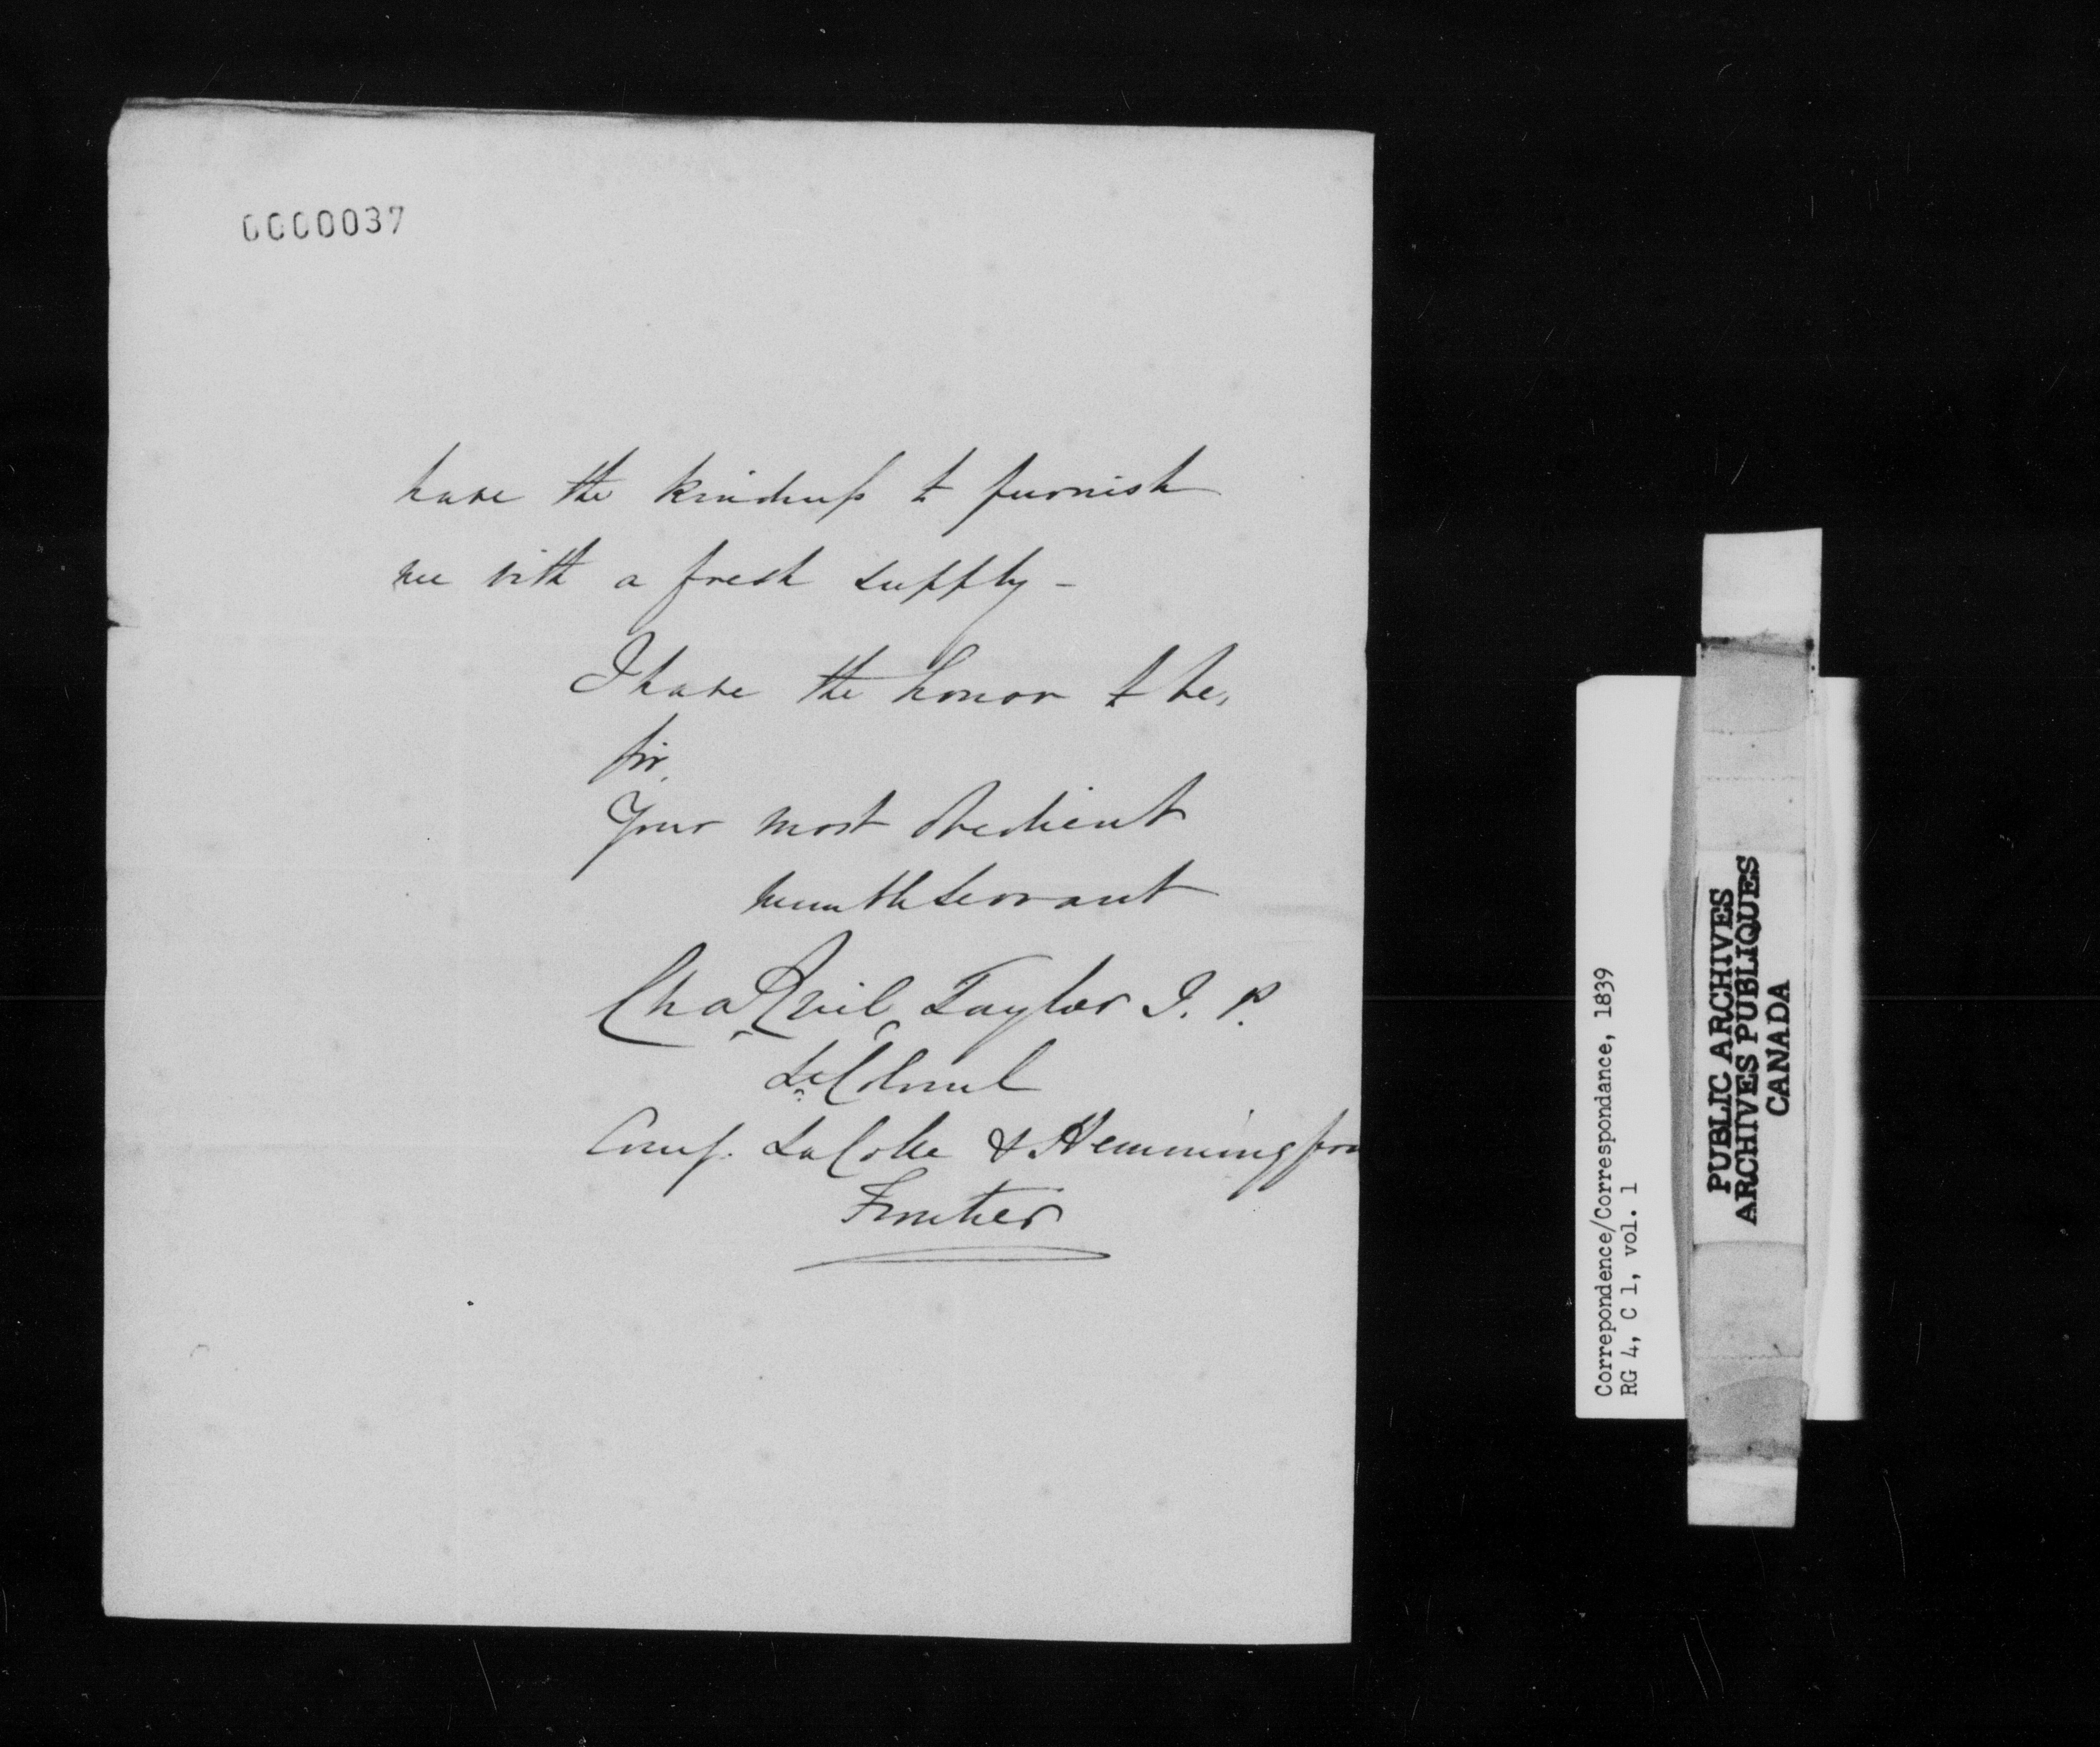 0000037
have the kindness to furnish
me with a fresh supply -
I have the honor to be,
Sir,
Your most obedient
humble servant
Chas Quil Taylor J. P.
Lt Colonel
Comg. LaColle & Hemmingford
Frontier
Correpondence/Correspondance, 1839
RG 4, C 1, vol. 1
PUBLIC ARCHIVES
ARCHIVES PUBLIQUES
CANADA